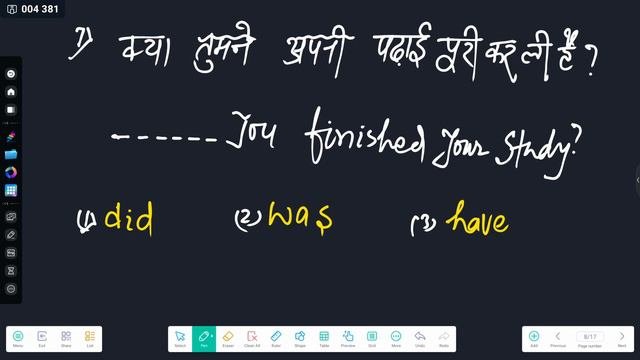 004 381
7) क्या तुमने अपनी पढ़ाई पूरी कर ली है ?
------ You finished Your Study?
(1) did (2) was (3) have
Menu Exit Share More Select Pen Eraser Clear All Ruler Shape Table Preview Grid More Undo Redo Add Previous 8/17 Page number Next